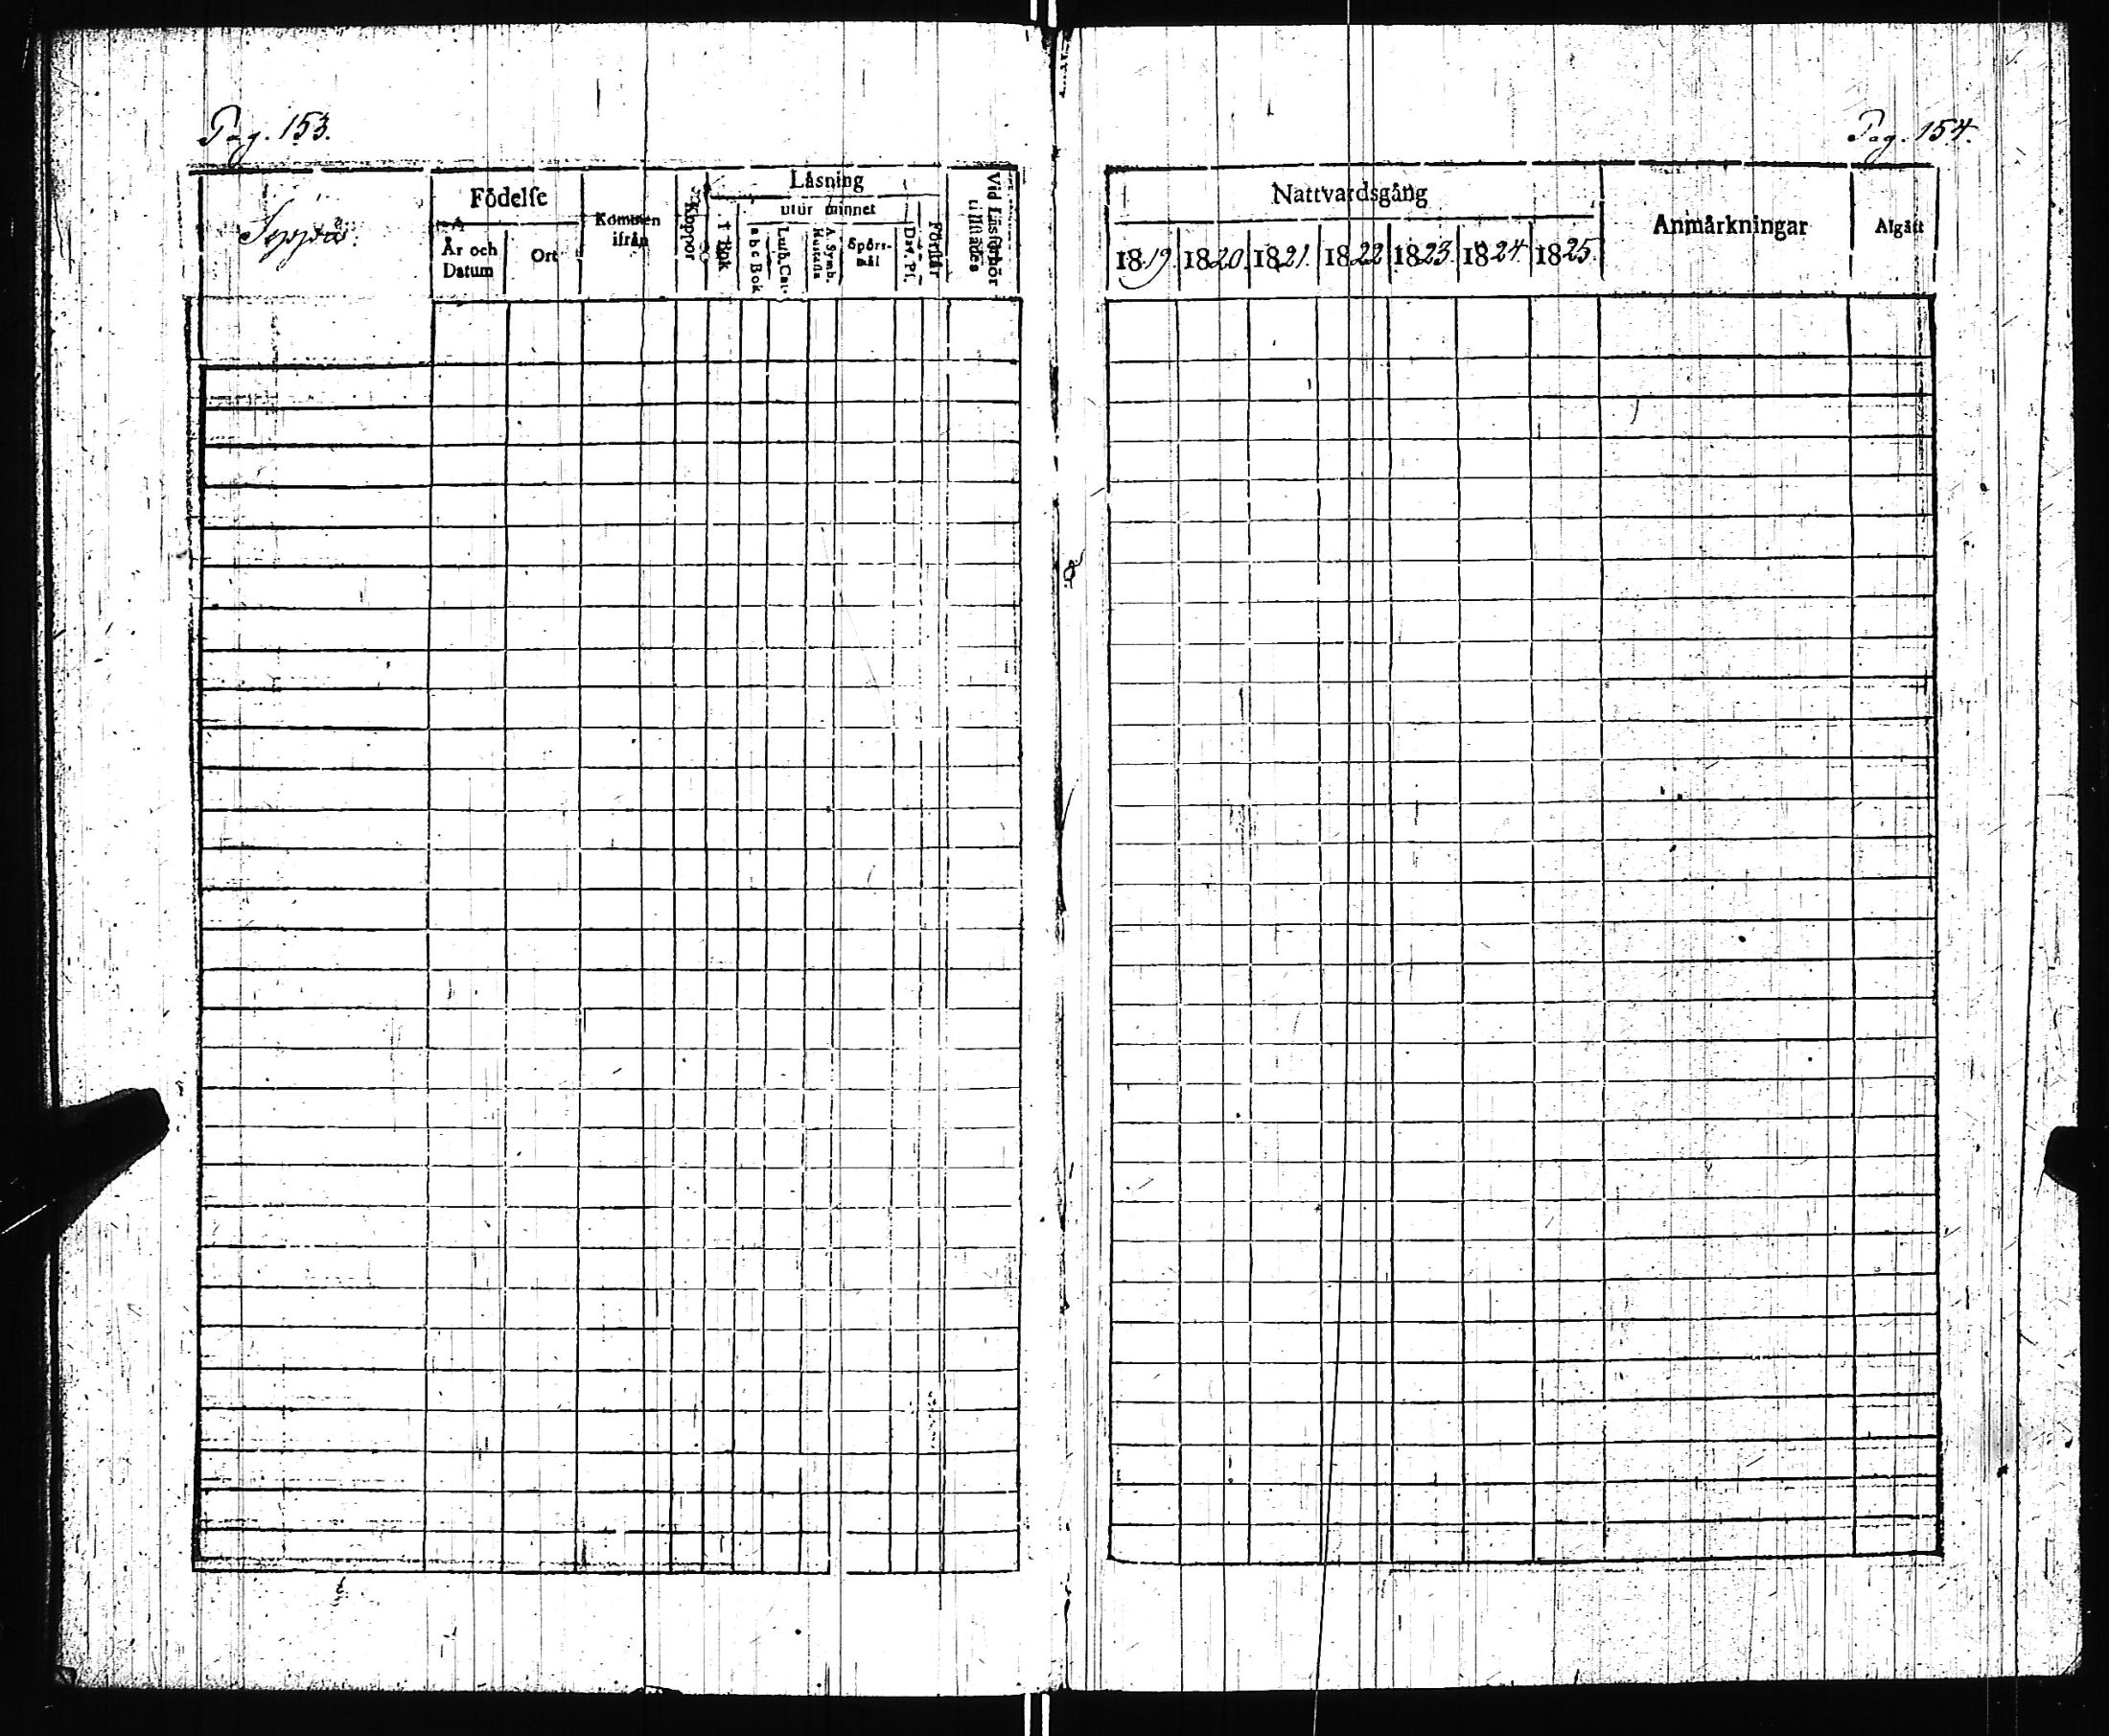 Pag. 153.
Födelse
År och Datum
Ort
Kommen ifrån
Koppor
Läsning
i Bok
utur minnet
a b c Bok
Luth. Cat.
A. Symb. Hustafla
Spörsmål
Dav. Ps.
Förstår
Vid Läsförhör tillstädes
Pag. 154.
Nattvardsgång
1819. 1820. 1821. 1822 1823. 1824 1825.
Anmärkningar
Afgått